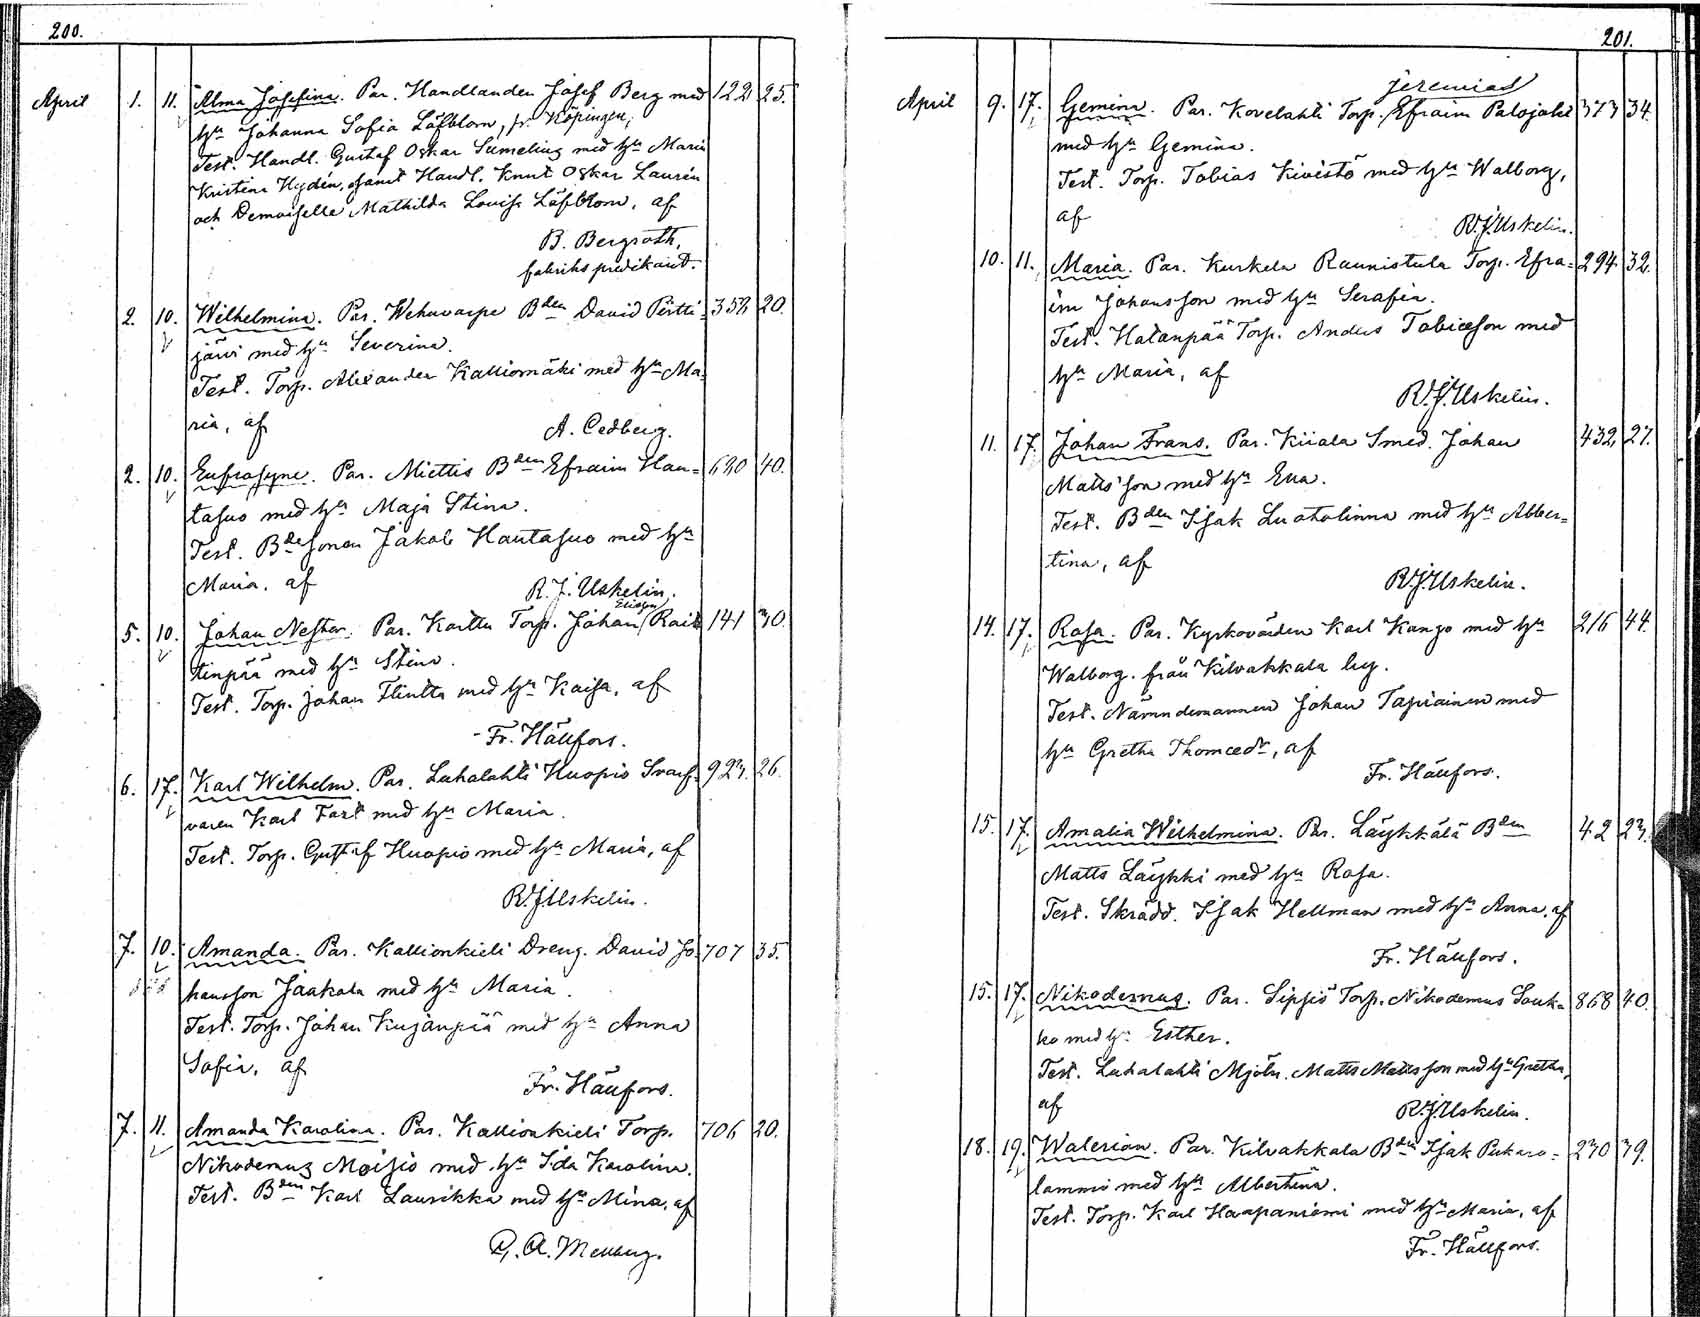 200.
April 1. 11. Alma Josefina. Par. Handlanden Josef Berg med 122 25.
hu Johanna Sofia Löfblom, fr. Köpingen,
Test. Handl. Gustaf Oskar Sumelius med hu Maria
Kristina Hydén, samt Handl. Knut Oskar Laurén
och Demoiselle Mathilda Lovisa Löfblom, af
B. Bergroth,
fabriks predikant.
2. 10. Wilhelmina. Par. Wehuvarpe Bden David Pertti- 352 20.
järvi med hu Severina.
Test. Torp. Alexander Kalliomäki med hu Ma-
ria, af
A. Cedberg.
2. 10. Eufrosyne. Par. Miettis Bden Efraim Hau- 620 40.
tasuo med hu Maja Stina.
Test. Bdesonen Jakob Hautasuo med hu
Maria. af
R. J. Uskelin.
Eliasson
5. 10. Johan Nestor. Par. Karttu Torp. Johan Rait- 141 30.
tinpää med hu Stina.
Test. Torp. Johan Flintta med hu Kaisa, af
Fr. Hällfors.
6. 17. Karl Wilhelm. Par. Luhalahti Huopio Svarf- 923. 26.
varen Karl Fast med hu Maria.
Test. Torp. Gustaf Huopio med hu Maria, af
R. J. Uskelin.
7. 10. Amanda. Par. Kallionkieli Dreng. David Jo- 707 35.
hansson Jaakola med hu Maria.
Test. Torp. Johan Kujanpää med hu Anna
Sofia, af
Fr. Hällfors.
7. 11. Amanda Karolina. Par. Kallionkieli Torp. 706 20.
Nikodemus Moisio med hu Ida Karolina.
Test. Bden Karl Laurikka med hu Mina, af
G. A. Mellberg.
201.
Jeremias
April 9. 17. Gemina. Par. Kovelahti Torp. Efraim Palojoki 373 34.
med hu Gemina.
Test. Torp. Tobias Kivistö med hu Walborg,
af
R. J. Uskelin.
10. 11. Maria. Par. Kurkela Raunistula Torp. Efra- 294. 32.
im Johansson med hu Serafia.
Test. Hatanpää Torp. Anders Tobiasson med
hu Maria, af
R. J. Uskelin.
11. 17. Johan Frans. Par. Kiiala Smed. Johan 432 27.
Mattsson med hu Eva.
Test. Bden Isak Luotolinna med hu Alber-
tina, af
R. J. Uskelin.
14. 17. Rosa. Par. Kyrkovärden Karl Kango med hu 216 44.
Walborg. från Kilvakkala by.
Test. Nämndemannen Johan Tapiainen med
hu Gretha Thomædr, af
Fr. Hällfors.
15. 17. Amalia Wilhelmina. Par. Läykkälä Bden 42 23.
Matts Läykki med hu Rosa.
Test. Skrädd. Isak Hellman med hu Anna. af
Fr. Hällfors.
15. 17. Nikodemus. Par. Sipsiö Torp. Nikodemus Souk- 868 40.
ko med hu Esther.
Test. Luhalahti Mjöln. Matts Mattsson med hu Gretha,
af
R. J. Uskelin.
18. 19. Walerian. Par. Kilvakkala Bden Isak Pukaro- 230 39.
lammi med hu Albertina.
Test. Torp. Karl Haapaniemi med hu Maria, af
Fr. Hällfors.